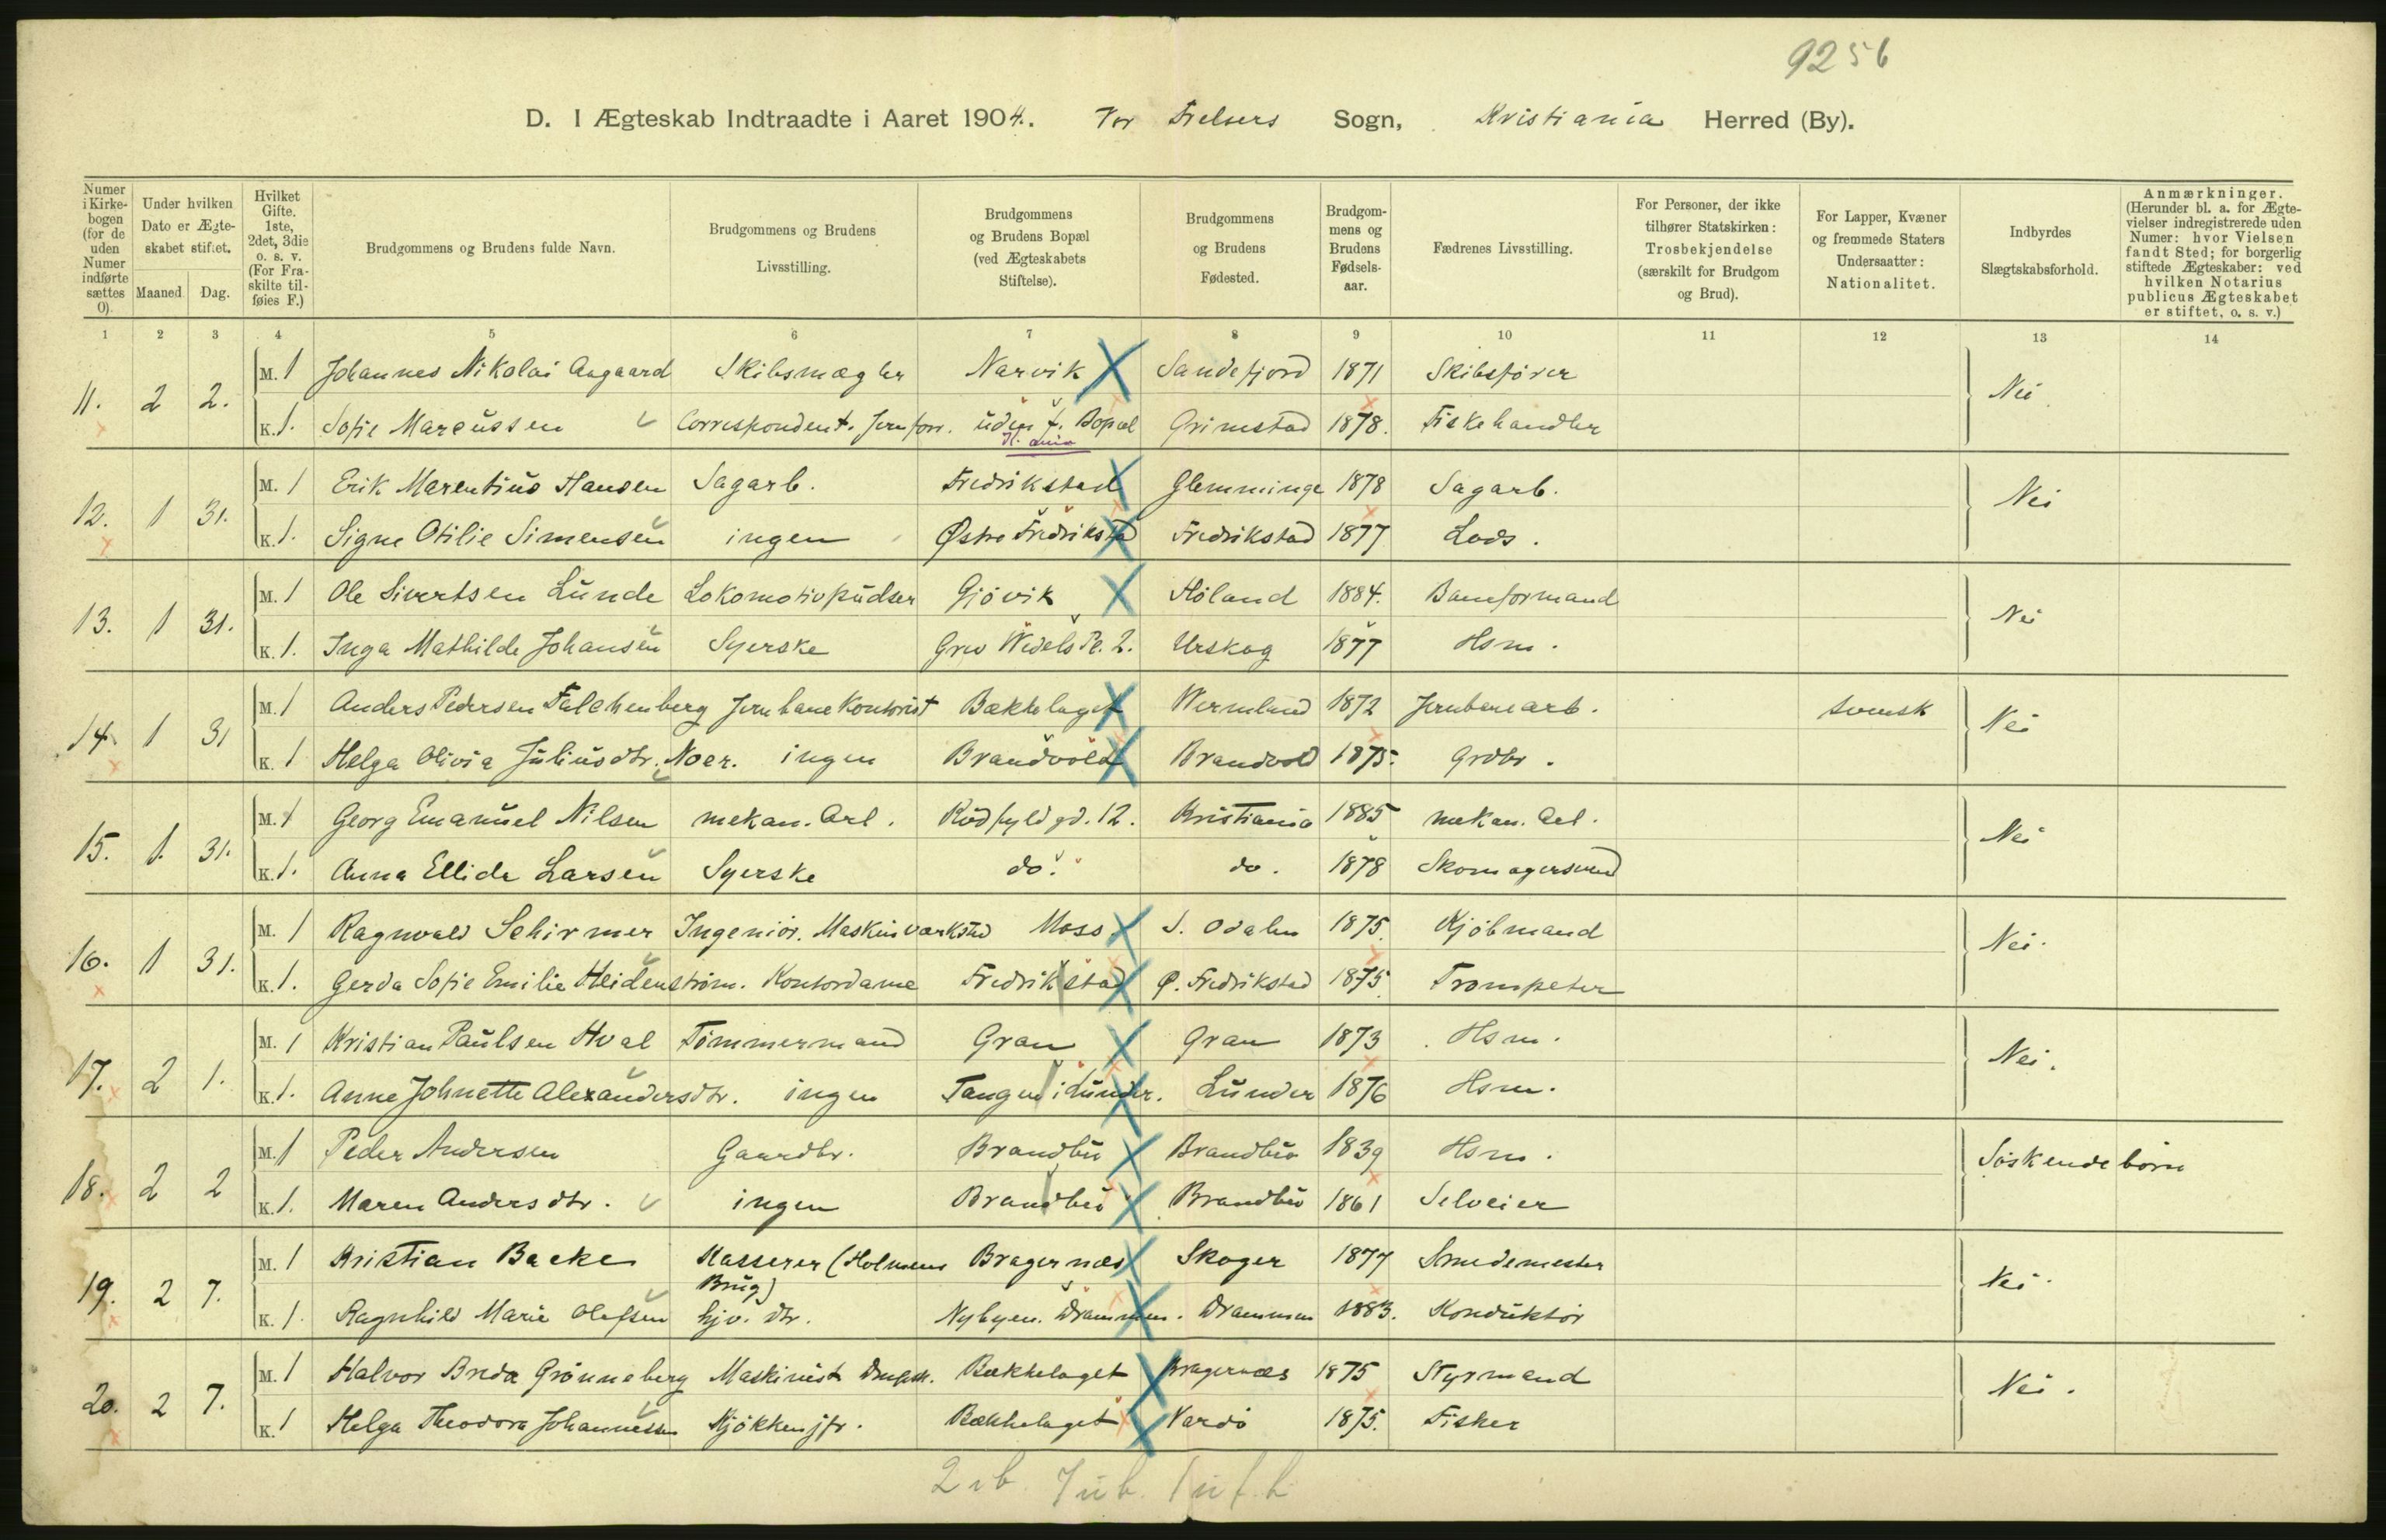 9256
D. I Ægteskab Indtraadte i Aaret 1904. Vor Frelsers Sogn, Kristiania Herred (By).
Numer i Kirkebogen (for de uden Numer indførte sættes 0).
Under hvilken Dato er Ægteskabet stiftet. Maaned. Dag.
Hvilket Gifte. 1ste, 2det, 3die o. s. v. (For Fraskilte tilføies F.)
Brudgommens og Brudens fulde Navn.
Brudgommens og Brudens Livsstilling.
Brudgommens og Brudens Bopæl (ved Ægteskabets Stiftelse).
Brudgommens og Brudens Fødested.
Brudgommens og Brudens Fødselsaar.
Fædrenes Livsstilling.
For Personer, der ikke tilhører Statskirken: Trosbekjendelse (særskilt for Brudgom og Brud).
For Lapper, Kvæner og fremmede Staters Undersaatter: Nationalitet.
Indbyrdes Slægtskabsforhold.
Anmærkninger. (Herunder bl. a. for Ægtevielser indregistrerede uden Numer: hvor Vielsen fandt Sted; for borgerlig stiftede Ægteskaber: ved hvilken Notarius publicus Ægteskabet er stiftet, o. s. v.)
1 2 3 4 5 6 7 8 9 10 11 12 13 14
M. 1 Johannes Nikolai Aagaard Skibsmægler Narvik Sandefjord 1871 Skibsfører
11. 2 2. Nei
K. 1. Sofie Marcussen Correspondent. Jernforr. uden f. Bopæl Grimstad 1878. Fiskehandler
K. ania
M. 1 Erik Marentius Hansen Sagarb. Fredrikstad Glemminge 1878 Sagarb.
12. 1 31. Nei
K. 1. Signe Otilie Simensen ingen Østre Fredrikstad Fredrikstad 1877 Lods.
M. 1 Ole Sivertsen Lunde Lokomotivpudser Gjövik Höland 1884. Baneformand
13. 1 31. Nei
K. 1. Inga Mathilde Johansen Syerske Grev Wedels Pl. 2. Urskog 1877 Hsm.
M. 1 Anders Pedersen Falchenberg Jernbanekontorist Bækkelaget Wermland 1872 Jernbanearb. svensk
14. 1 31 Nei
K. 1 Helga Olivia Juliusdtr. Noer. ingen Brandvold Brandvold 1875. Grdbr.
M. 1 Georg Emanuel Nilsen mekan. Arb. Rödfyldgd. 12. Kristiania 1885 mekan. Arb.
15. 1. 31. Nei
K. 1. Anna Ellida Larsen Syerske do. do. 1878 Skomagersvend
M. 1 Ragnvald Schirmer Ingeniör. Maskinværksted Moss S. Odalen 1875. Kjöbmand
16. 1 31. Nei.
K. 1. Gerda Sofie Emilie Heidenström. Kontordame Fredrikstad Ø. Fredrikstad 1875. Trompeter
M. 1 Kristian Paulsen Hval Tömmermand Gran Gran 1873 Hsm.
17. 2 1. Nei.
K. 1. Anne Johnette Alexandersdtr. ingen Tangen i Lunder. Lunder 1876 Hsm.
M. 1 Peder Andersen Gaardbr. Brandbu Brandbu 1839 Hsm.
18. 2 2 Söskendebörn
K. 1. Maren Andersdtr. ingen Brandbu Brandbu 1861 Selveier
M. 1 Kristian Backe Kasserer (Holmens Bragernæs Skoger 1877 Smedemester
Brug)
19. 2 7. Nei.
K. 1. Ragnhild Marie Olefsen hjv. dtr. Nybyen. Drammen. Drammen 1883. Konduktör
M. 1 Halvor Breda Grönneberg Maskinist Bækkelaget Bragernæs 1875 Styrmand
20. 2 7. Nei.
K. 1 Helga Theodora Johannessen Kjökkenjfr. Bækkelaget Vardö 1875. Fisker